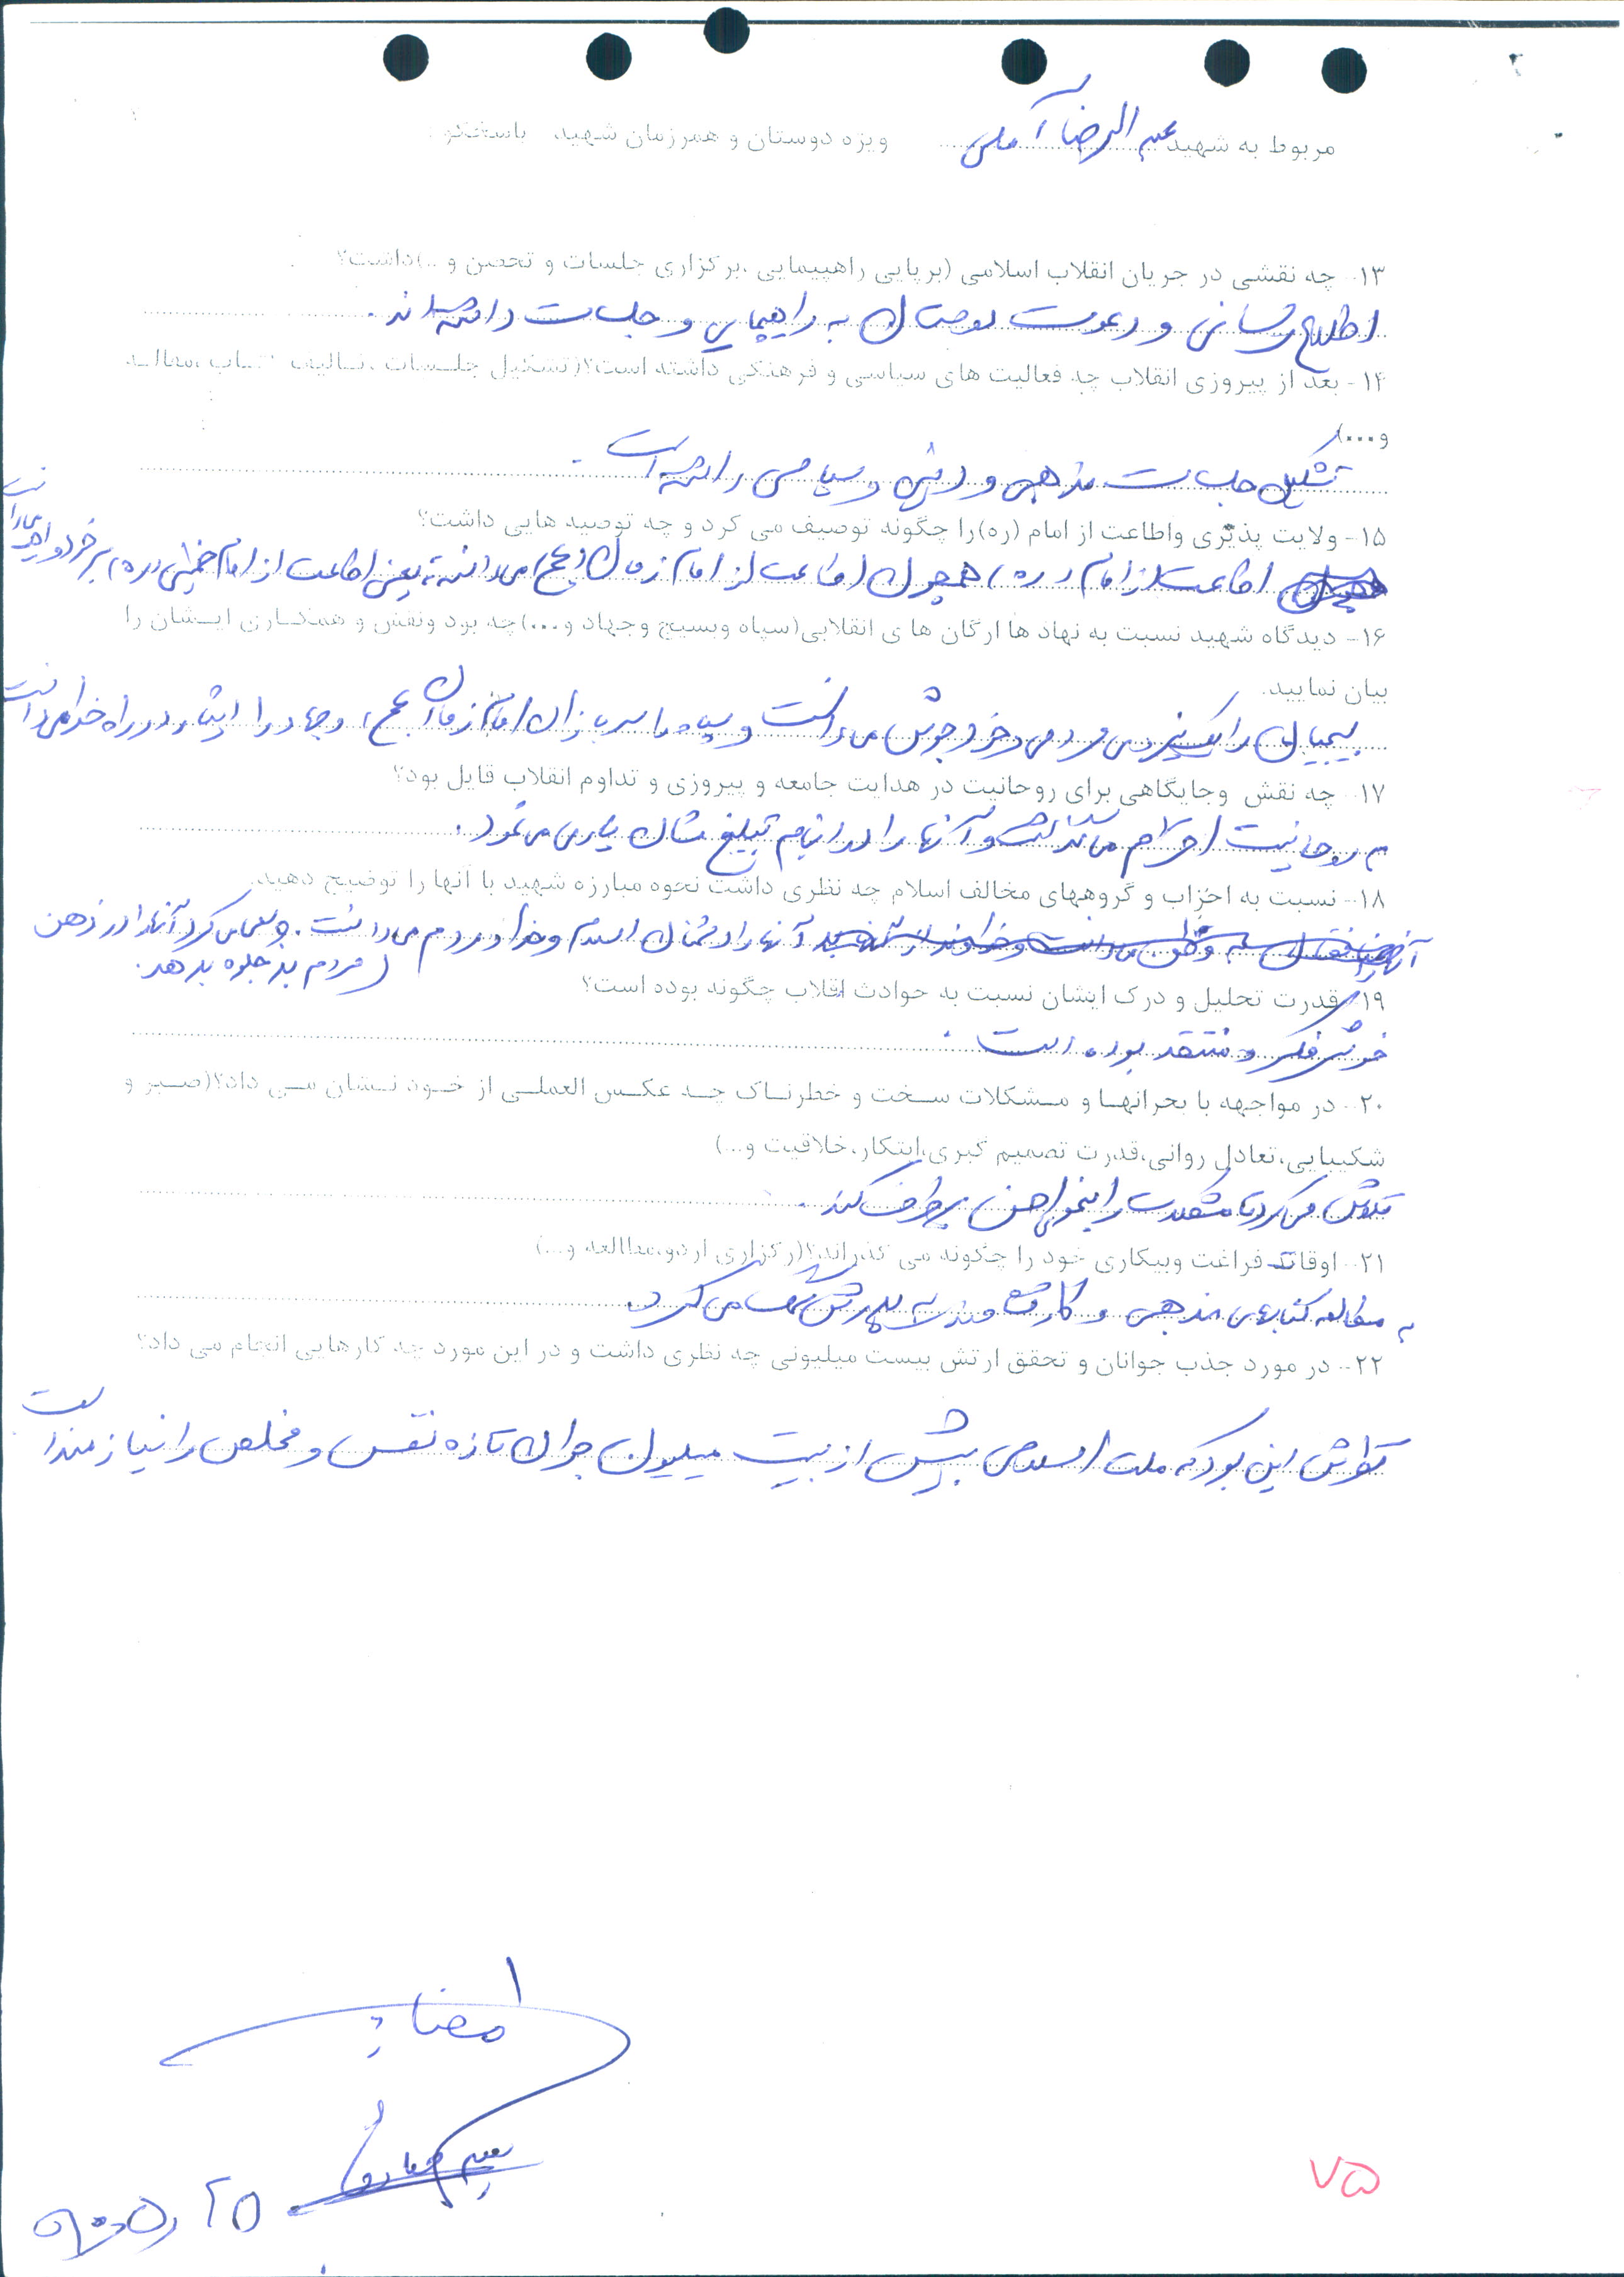 مربوط به شهید عبدالرضا آملی ویژه دوستان و همرزمان شهید، پاسخگو:
۱۳- چه نقشی در جریان انقلاب اسلامی (برپایی راهپیمایی ،برگزاری جلسات و تحصن و ..)داشت؟
اطلاع رسانی و دعوت دوستان به راهپیمایی و جلسات داشته اند.
۱۴- بعد از پیروزی انقلاب چه فعالیت های سیاسی و فرهنگی داشته است؟(تشکیل جلسات ، تالیف کتاب ،مقاله
و...)
تشکیل جلسات مذهبی و دینی و سیاسی داشته است.
۱۵- ولایت پذیری واطاعت از امام (ره)را چگونه توصیف می کرد و چه توصیه هایی داشت؟
اطاعت از امام (ره) همچون اطاعت از امام زمان (عج) می دانست یعنی اطاعت از امام خمینی (ره) بر خود واجب
۱۶- دیدگاه شهید نسبت به نهاد ها ارگان ها ی انقلابی(سپاه وبسیج وجهاد و...)چه بود ونقش و همکاری ایشان را
بیان نمایید.
بسیجیان را یک نیروی مردمی و خودجوش می دانست و سپاه را سربازان امام زمان (عج) و جهاد را ایثار در راه خدا می دانست
۱۷- چه نقش وجایگاهی برای روحانیت در هدایت جامعه و پیروزی و تداوم انقلاب قایل بود؟
به روحانیت احترام می گذاشت و آنها را در انجام تبلیغ شان یاری می نمود.
۱۸- نسبت به احزاب و گروههای مخالف اسلام چه نظری داشت نحوه مبارزه شهید با آنها را توضیح دهید.
آنها را دشمنان اسلام و خدا و مردم می دانست. و سعی می کرد آنها را در ذهن
مردم بد جلوه بدهد.
۱۹- قدرت تحلیل و درک ایشان نسبت به حوادث انقلاب چگونه بوده است؟
خوش فکر و منتقد بوده است.
۲۰- در مواجهه با بحرانها و مشکلات سخت و خطرناک چه عکس العملی از خود نشان می داد؟(صبر و
شکیبایی،تعادل روانی،قدرت تصمیم گیری،ابتکار،خلاقیت و...)
تلاش می کرد تا مشکلات را بنحو احسن برطرف کند.
۲۱- اوقات فراغت وبیکاری خود را چگونه می گذراند؟(برگزاری اردو،مطالعه و...)
به مطالعه کتابهای مذهبی و کار و به پدرش کمک می کرد.
۲۲- در مورد جذب جوانان و تحقق ارتش بیست میلیونی چه نظری داشت و در این مورد چه کارهایی انجام می داد؟
نظرش این بود که ملت اسلامی بیش از بیست میلیون جوان تازه نفس و مخلص را نیازمند است
امضاء
۹۰،۵،۲۵
۷۵